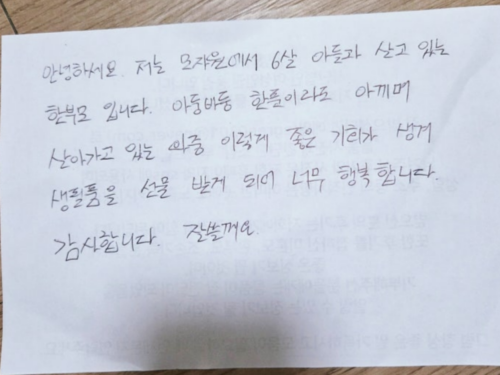 안녕하세요. 저는 모자원에서 6살 아들과 살고 있는
한부모 입니다. 아둥바둥 한푼이라도 아끼며
살아가고 있는 와중 이렇게 좋은 기회가 생겨
생필품을 선물 받게 되어 너무 행복합니다.
감사합니다. 잘쓸께요.